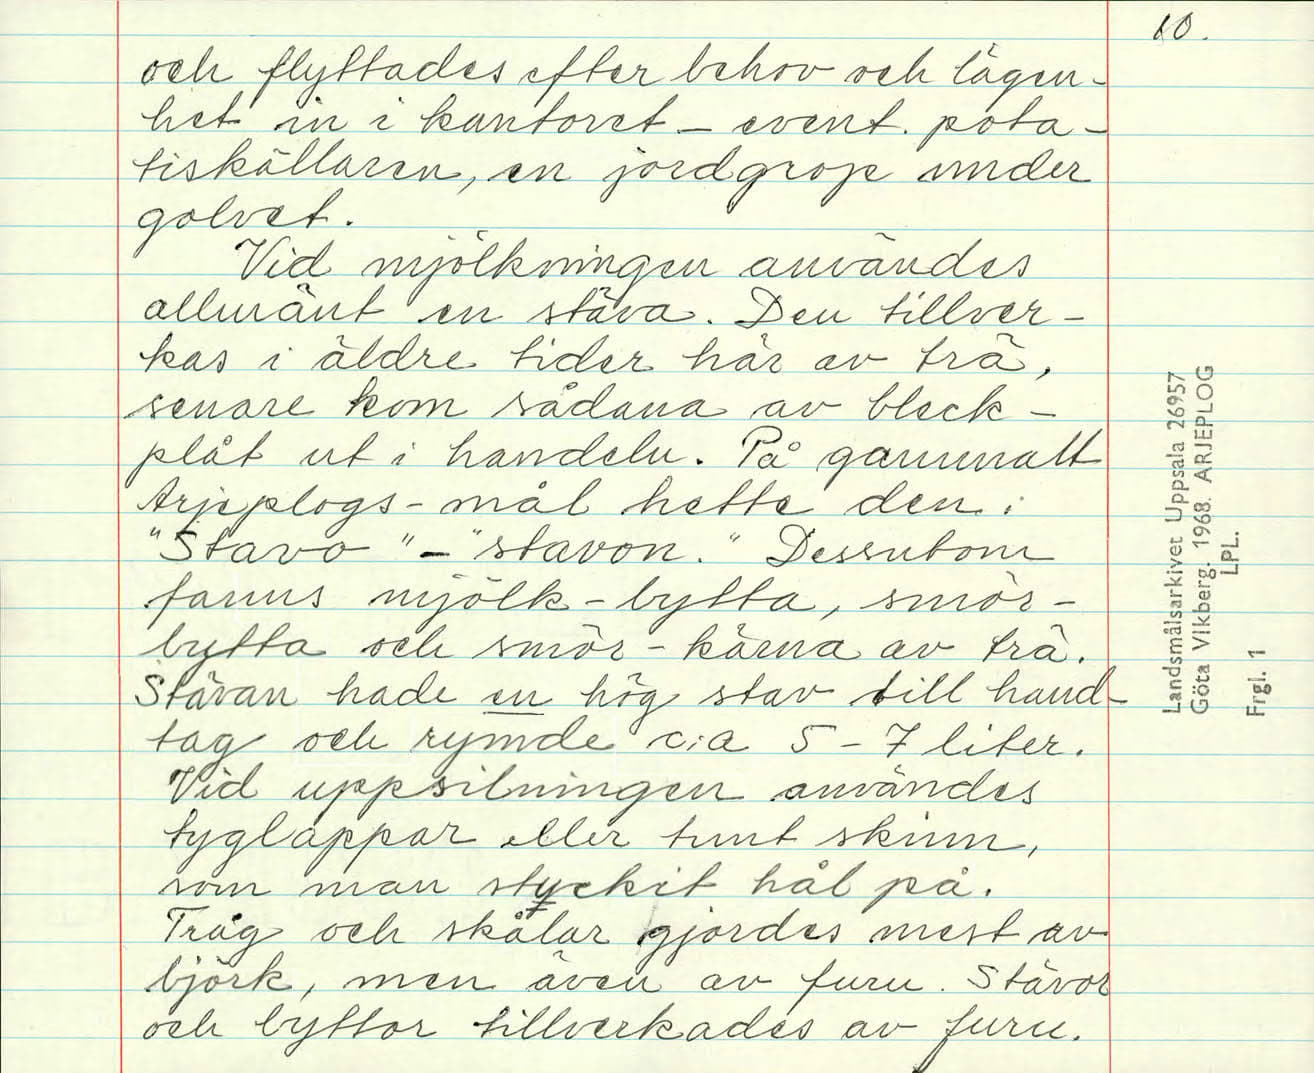 10.
och flyttades efter behov och lägen-
het in i kantoret – event. pota-
tiskällaren, en jordgrop under
golvet.
Vid mjölkningen användes
allmänt en stäva. Den tillver-
kas i äldre tider här av trä,
senare kom sådana av bleck-
plåt ut i handeln. På gammalt
Arjeplogs-mål hette den:
"Stavo" – "stavon." Dessutom
fanns mjölk-bytta, smör-
bytta och smör-kärna av trä.
Stävan hade en hög stav till hand-
tag och rymde c:a 5–7 liter.
Vid uppsilningen användes
tyglappar eller tunt skinn,
som man styckit hål på.
Tråg och skålar gjordes mest av
björk, men även av furu. Stävor
och byttor tillverkades av furu.
Landsmålsarkivet Uppsala 26957
Göta Vikberg. 1968. ARJEPLOG
LPL.
Frgl. 1